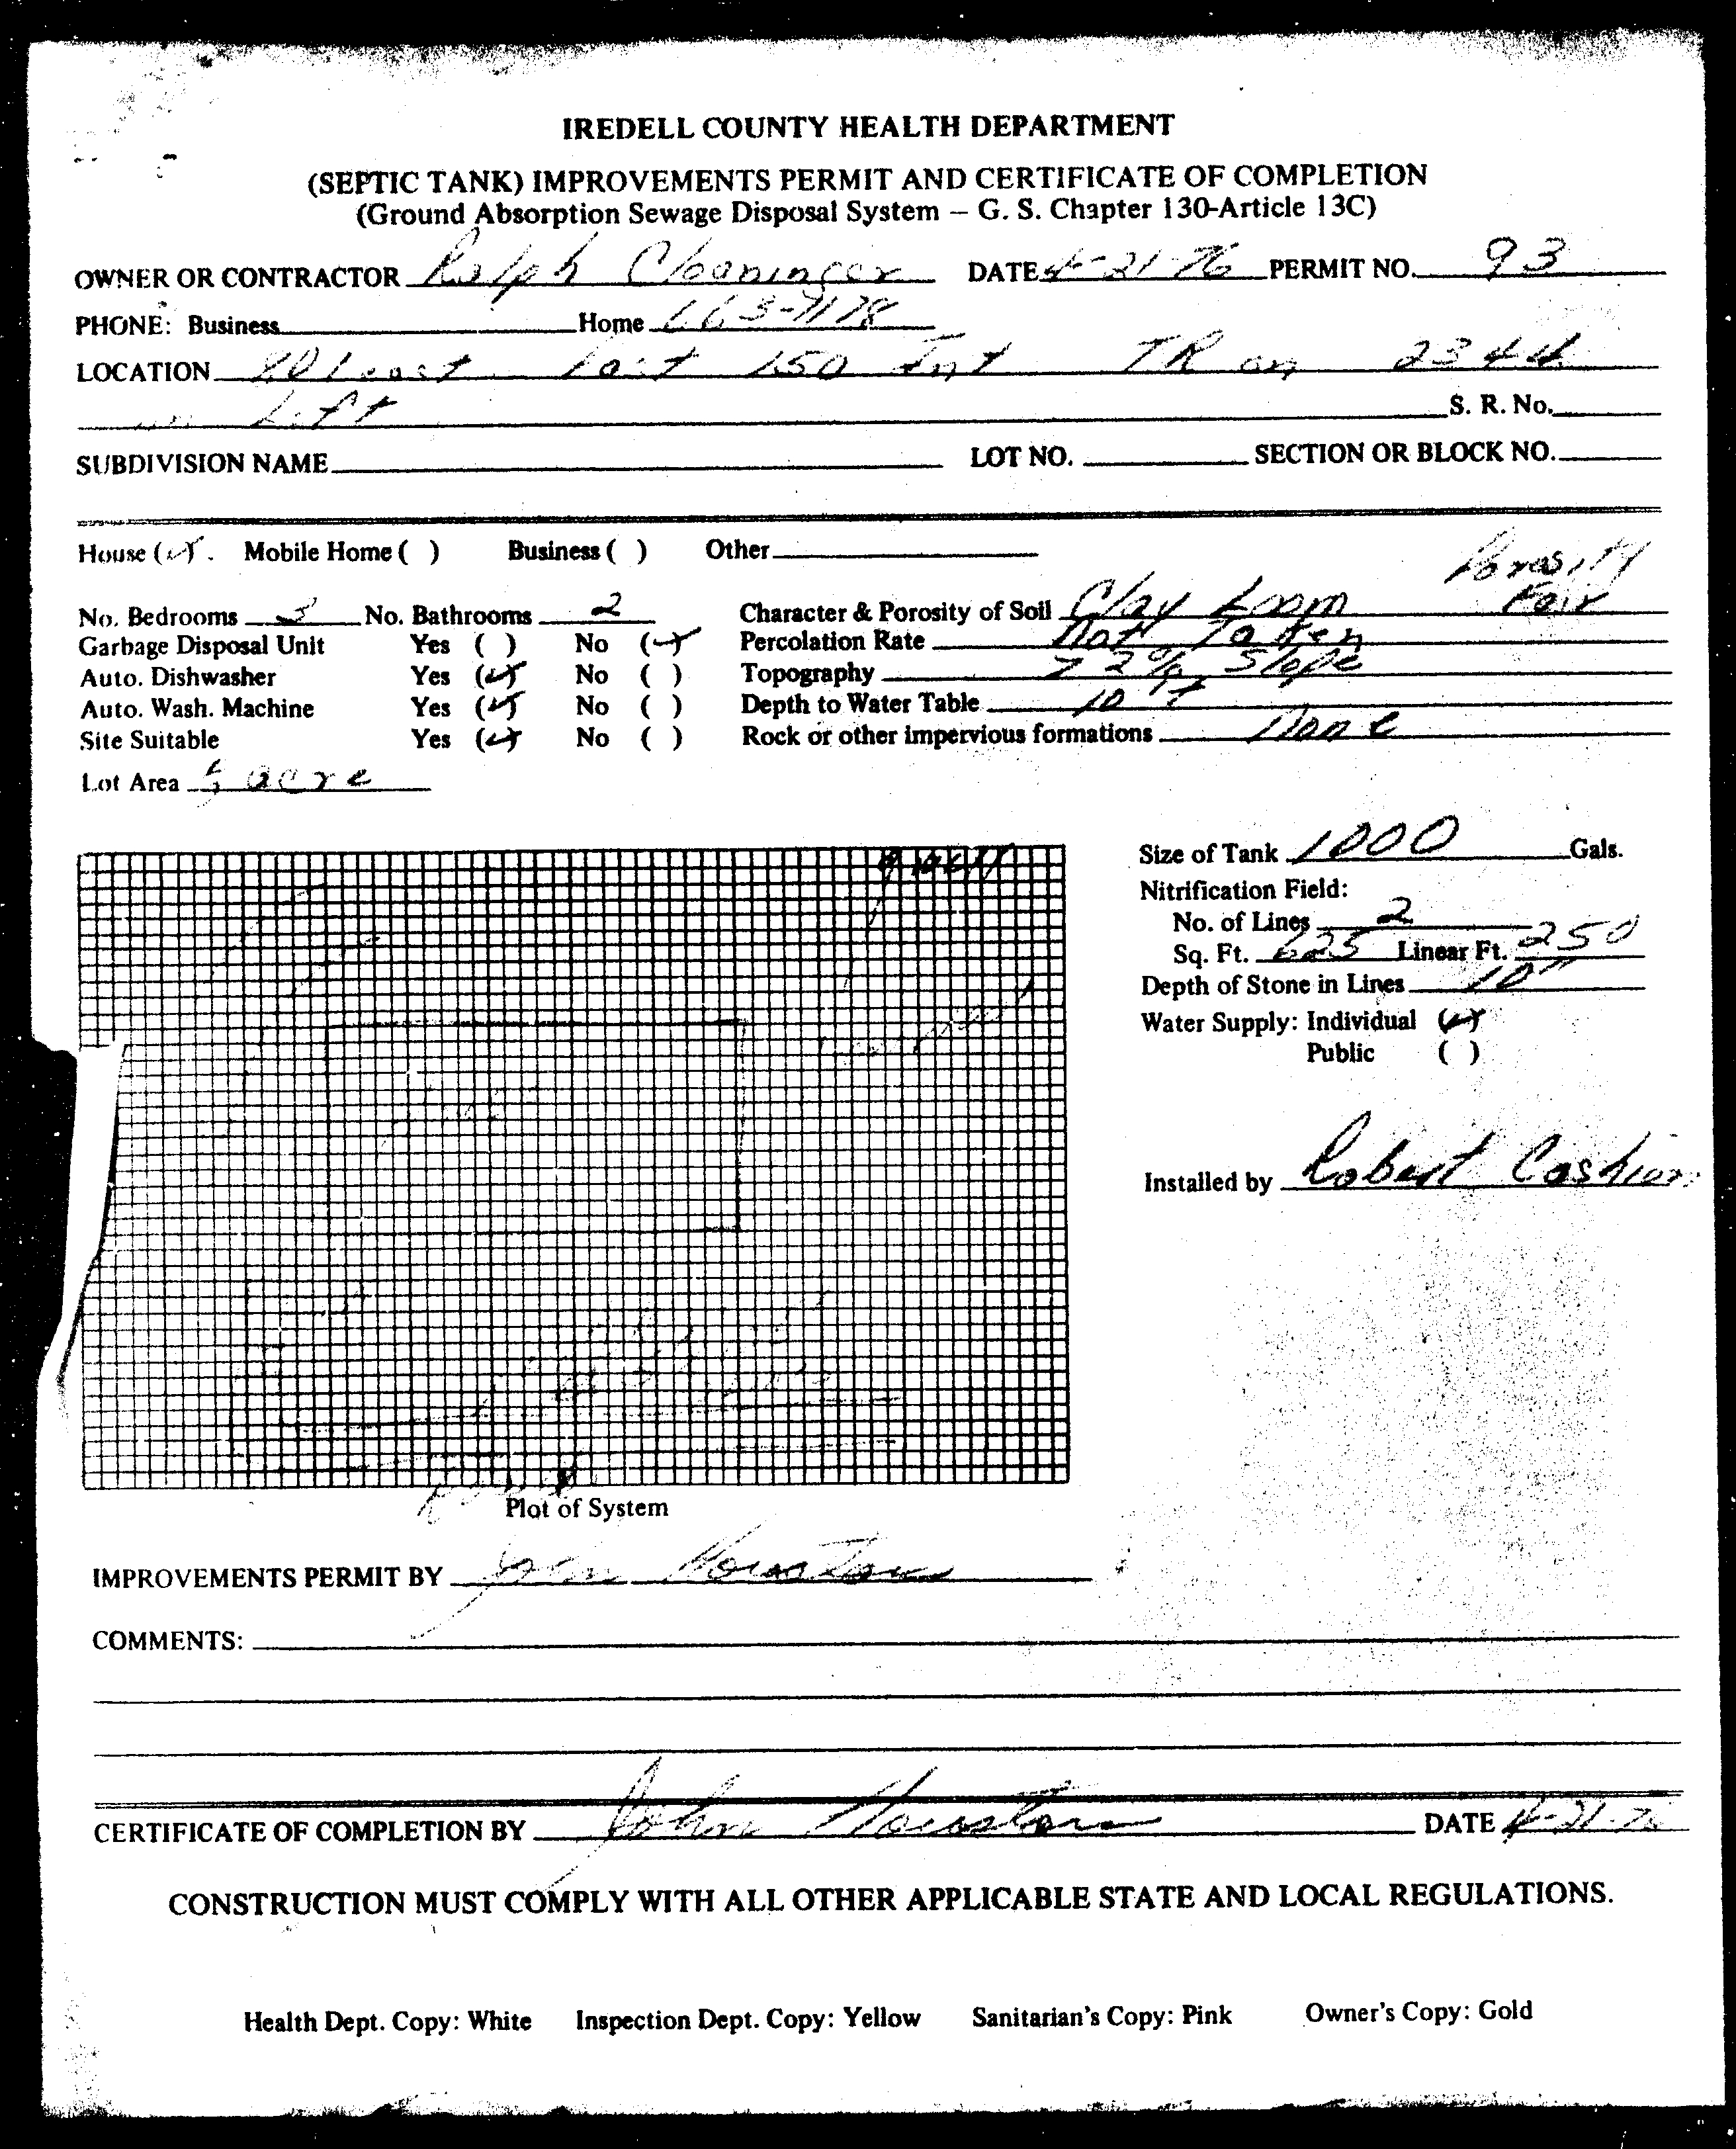 IREDELL COUNTY HEALTH DEPARTMENT
(SEPTIC TANK) IMPROVEMENTS PERMIT AND CERTIFICATE OF COMPLETION
(Ground Absorption Sewage Disposal System – G. S. Chapter 130-Article 13C)
OWNER OR CONTRACTOR Ralph Cloaninger DATE 4-21-76 PERMIT NO. 93
PHONE: Business Home 663-7178
LOCATION 801 Past 150 Int TR on 2344
on Left S. R. No.
SUBDIVISION NAME LOT NO. SECTION OR BLOCK NO.
House (✓). Mobile Home ( ) Business ( ) Other
Porosity
Fair
No. Bedrooms 3 No. Bathrooms 2 Character & Porosity of Soil Clay Loom
Garbage Disposal Unit Yes ( ) No (✓) Percolation Rate Not Taken
Auto. Dishwasher Yes (✓) No ( ) Topography > 2% Slope
Auto. Wash. Machine Yes (✓) No ( ) Depth to Water Table 10 ft
Site Suitable Yes (✓) No ( ) Rock or other impervious formations None
Lot Area acre
Size of Tank 1000 Gals.
Nitrification Field:
No. of Lines 2
Sq. Ft. 625 Linear Ft. 250
Depth of Stone in Lines 10"
Water Supply: Individual (✓)
Public ( )
Installed by Robert Cashion
Plot of System
IMPROVEMENTS PERMIT BY John Houston
COMMENTS:
CERTIFICATE OF COMPLETION BY John Houston DATE 4-21-76
CONSTRUCTION MUST COMPLY WITH ALL OTHER APPLICABLE STATE AND LOCAL REGULATIONS.
Health Dept. Copy: White Inspection Dept. Copy: Yellow Sanitarian's Copy: Pink Owner's Copy: Gold